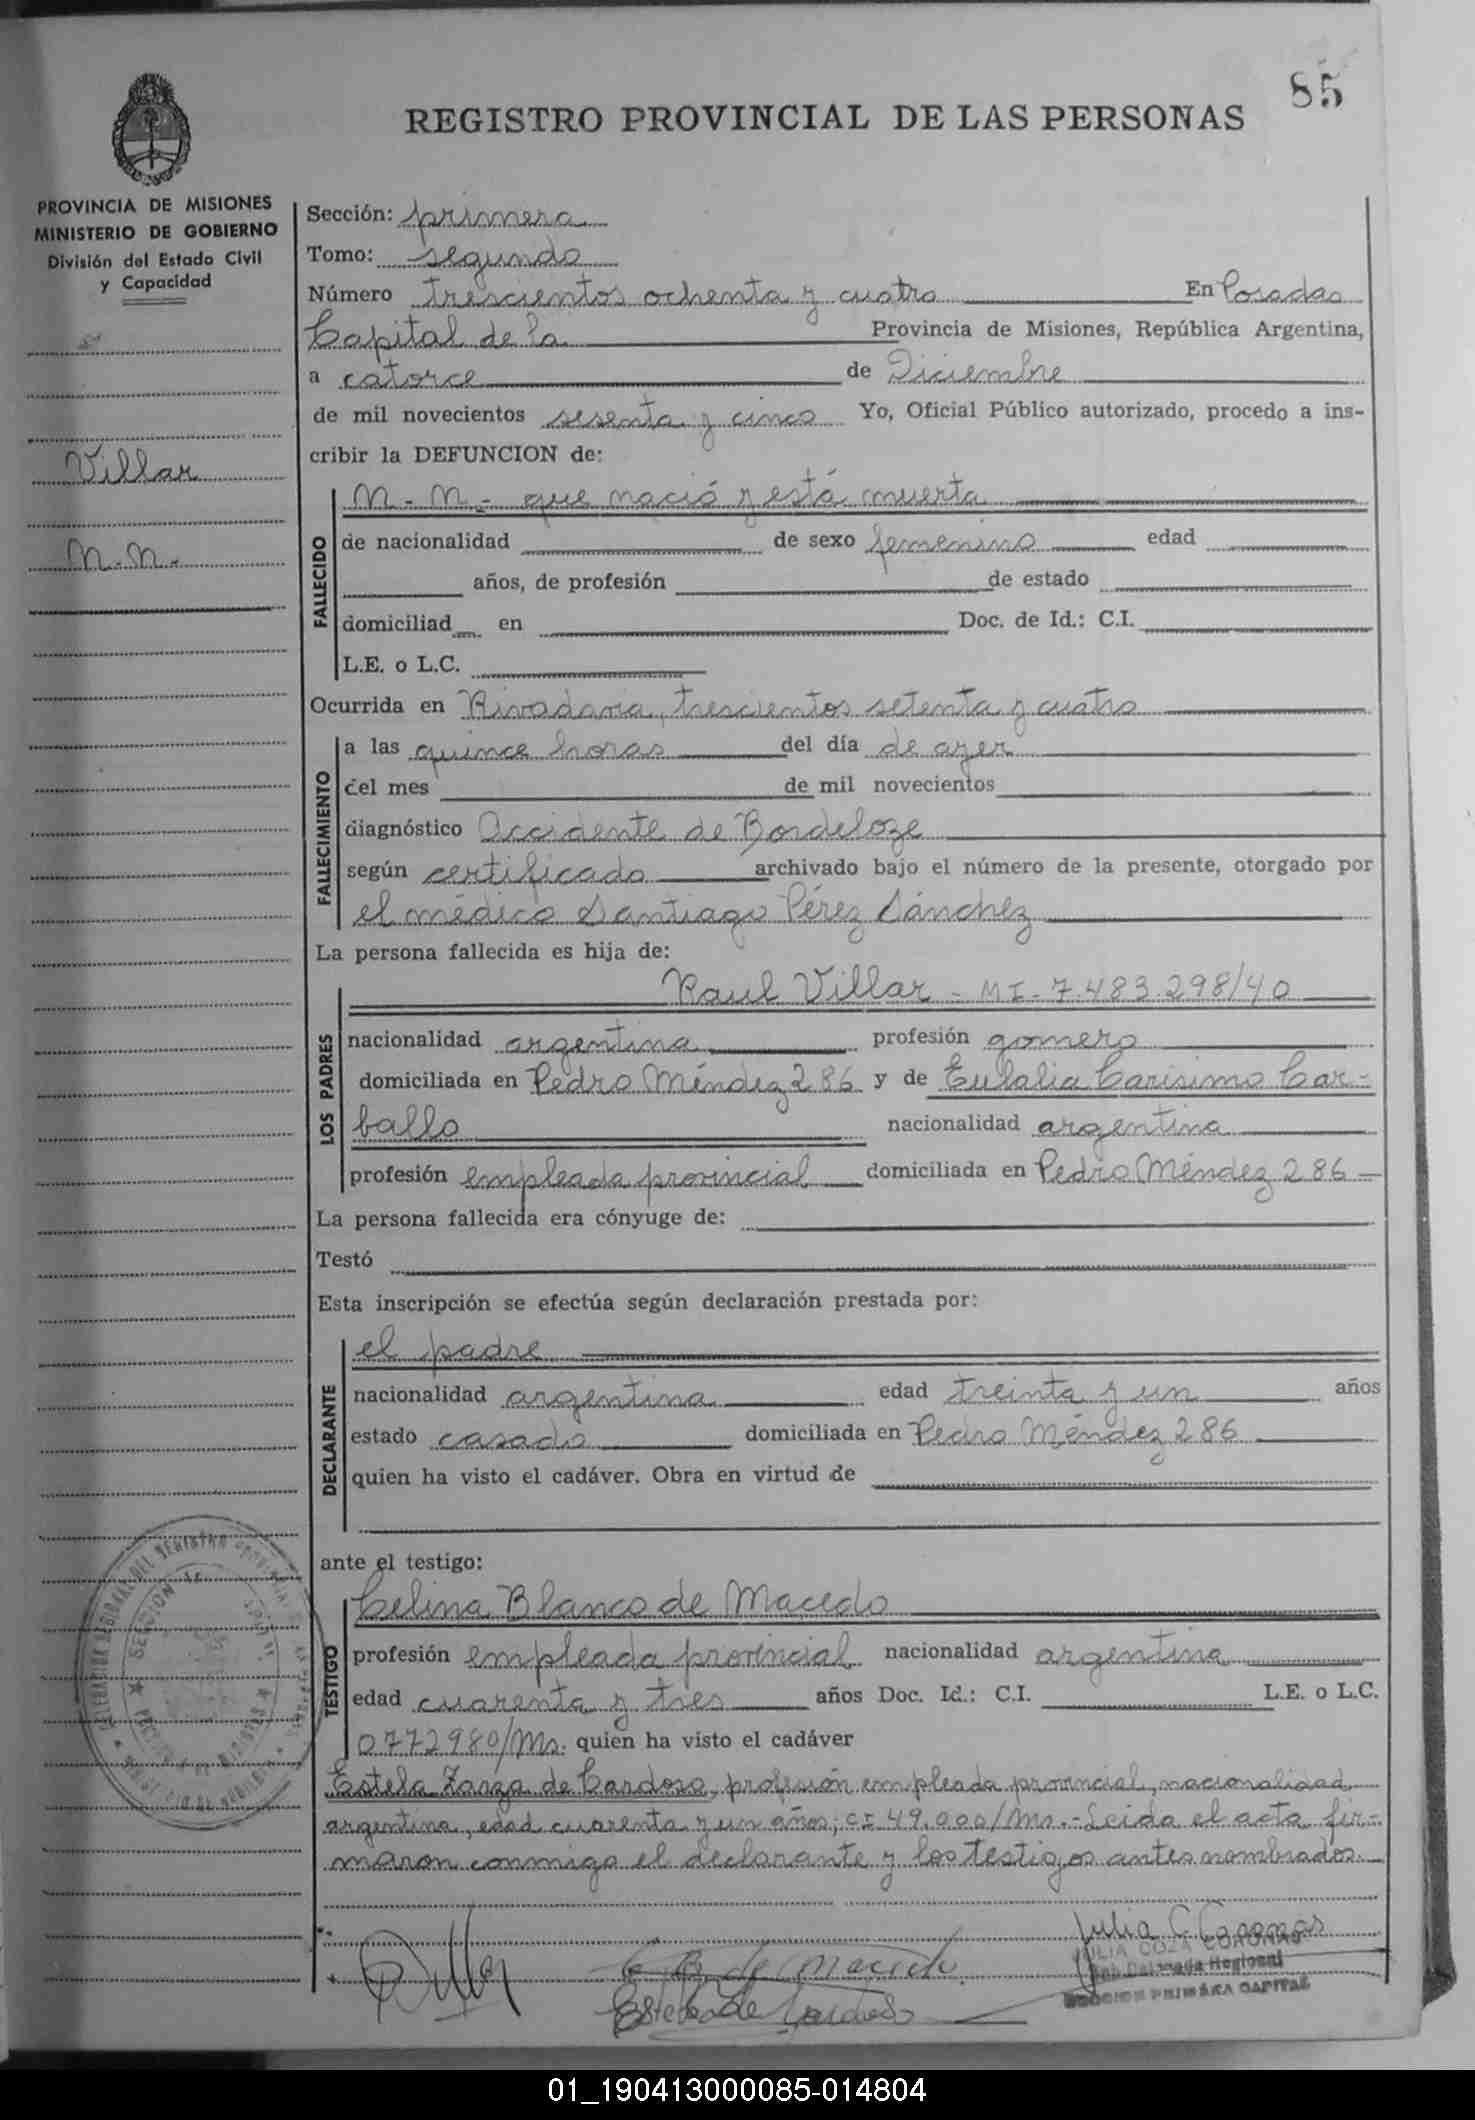 85
REGISTRO PROVINCIAL DE LAS PERSONAS
PROVINCIA DE MISIONES
MINISTERIO DE GOBIERNO
División del Estado Civil
y Capacidad
Villar
N.N.
Sección: primera
Tomo: segundo
Número trescientos ochenta y cuatro En Posadas
Capital de la Provincia de Misiones, República Argentina,
a catorce de Diciembre
de mil novecientos sesenta y cinco Yo, Oficial Público autorizado, procedo a ins-
cribir la DEFUNCION de:
FALLECIDO
N.-N.- que nació y está muerta
de nacionalidad de sexo femenino edad
años, de profesión de estado
domiciliad en Doc. de Id.: C.I.
L.E. o L.C.
Ocurrida en Rivadavia, trescientos setenta y cuatro
FALLECIMIENTO
a las quince horas del día de ayer
del mes de mil novecientos
diagnóstico Accidente de Bordeloze
según certificado archivado bajo el número de la presente, otorgado por
el médico Santiago Pérez Sánchez
La persona fallecida es hija de:
LOS PADRES
Raul Villar - MI - 7.483.298/40
nacionalidad argentina profesión gomero
domiciliada en Pedro Méndez 286 y de Eulalia Carisimo Car-
ballo nacionalidad argentina
profesión empleada provincial domiciliada en Pedro Méndez 286
La persona fallecida era cónyuge de:
Testó
Esta inscripción se efectúa según declaración prestada por:
DECLARANTE
el padre
nacionalidad argentina edad treinta y un años
estado casado domiciliada en Pedro Méndez 286
quien ha visto el cadáver. Obra en virtud de
ante el testigo:
TESTIGO
Celina Blanco de Macedo
profesión empleada provincial nacionalidad argentina
edad cuarenta y tres años Doc. Id.: C.I. L.E. o L.C.
0772980/Ms. quien ha visto el cadáver
Estela Zarza de Cardozo, profesión empleada provincial, nacionalidad
argentina, edad cuarenta y un años; CI 49.000/Ms.- Leida el acta fir-
maron conmigo el declarante y los testigos antes nombrados.
C B. de Macedo
Estela de Cardozo
Julia C. Coronas
JULIA COZA CORONAS
Sub Delegada Regional
SECCION PRIMERA CAPITAL
01_190413000085-014804